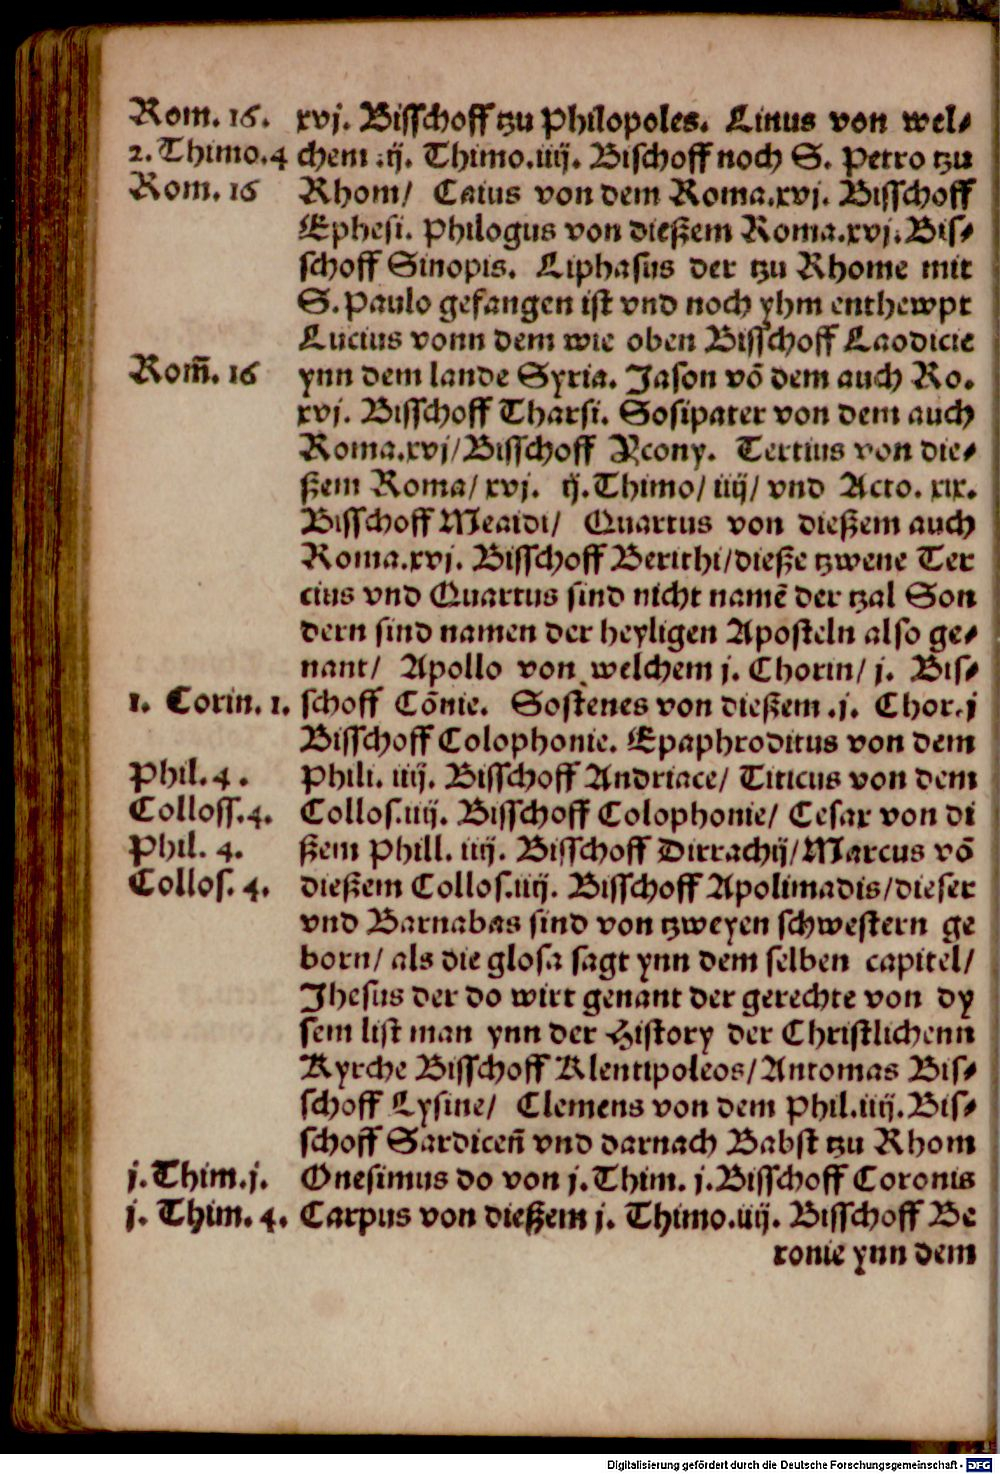 Rom. 16. xvj. Bisschoff tzu Philopoles. Linus von wel⸗
2. Thimo.4 chem .ij. Thimo.iiij. Bischoff noch S. Petro tzu
Rom. 16 Rhom/ Caius von dem Roma.xvj. Bisschoff
Ephesi. Philogus von dießem Roma.xvj. Bis⸗
schoff Sinopis. Liphasus der tzu Rhome mit
S. Paulo gefangen ist vnd noch yhm enthewpt
Lucius vonn dem wie oben Bisschoff Laodicie
Rom̄. 16 ynn dem lande Syria. Jason võ dem auch Ro.
xvj. Bisschoff Tharsi. Sosipater von dem auch
Roma.xvj/Bisschoff Ycony. Tertius von die⸗
ßem Roma/ xvj. ij. Thimo/ iiij/ vnd Acto. xix.
Bisschoff Meaidi/ Quartus von dießem auch
Roma.xvj. Bisschoff Berithi/dieße tzwene Ter
cius vnd Quartus sind nicht namē der tzal Son
dern sind namen der heyligen Aposteln also ge⸗
nant/ Apollo von welchem j. Chorin/ j. Bis⸗
1. Corin. 1. schoff Cõnie. Sostenes von dießem .j. Chor.j
Bisschoff Colophonie. Epaphroditus von dem
Phil. 4. Phili. iiij. Bisschoff Andriace/ Titicus von dem
Colloss.4. Collos.iiij. Bisschoff Colophonie/ Cesar von di
Phil. 4. ßem Phill. iiij. Bisschoff Dirrachij/Marcus võ
Collos. 4. dießem Collos.iiij. Bisschoff Apolimadis/dieser
vnd Barnabas sind von tzweyen schwestern ge
born/ als die glosa sagt ynn dem selben capitel/
Jhesus der do wirt genant der gerechte von dy
sem list man ynn der History der Christlichenn
Kyrche Bisschoff Klentipoleos/Antomas Bis⸗
schoff Lysine/ Clemens von dem Phil.iiij. Bis⸗
schoff Sardiceñ vnd darnach Babst tzu Rhom
j. Thim.j. Onesimus do von j. Thim. j. Bisschoff Coronis
j. Thim. 4. Carpus von dießem j. Thimo.iiij. Bisschoff Be
ronie ynn dem
Digitalisierung gefördert durch die Deutsche Forschungsgemeinschaft - DFG